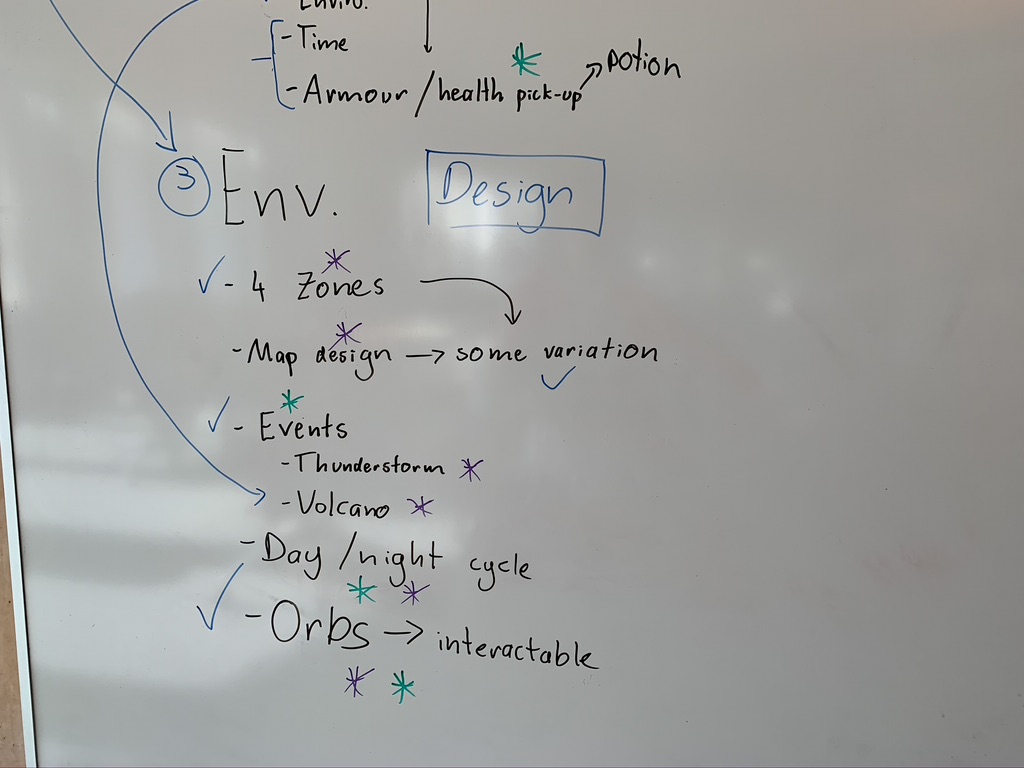 Enviro.
- Time
- Armour / health pick-up → potion
③ Env. Design
✓ - 4 Zones
- Map design → some variation ✓
✓ - Events
- Thunderstorm
- Volcano
- Day / night cycle
✓ - Orbs → interactable